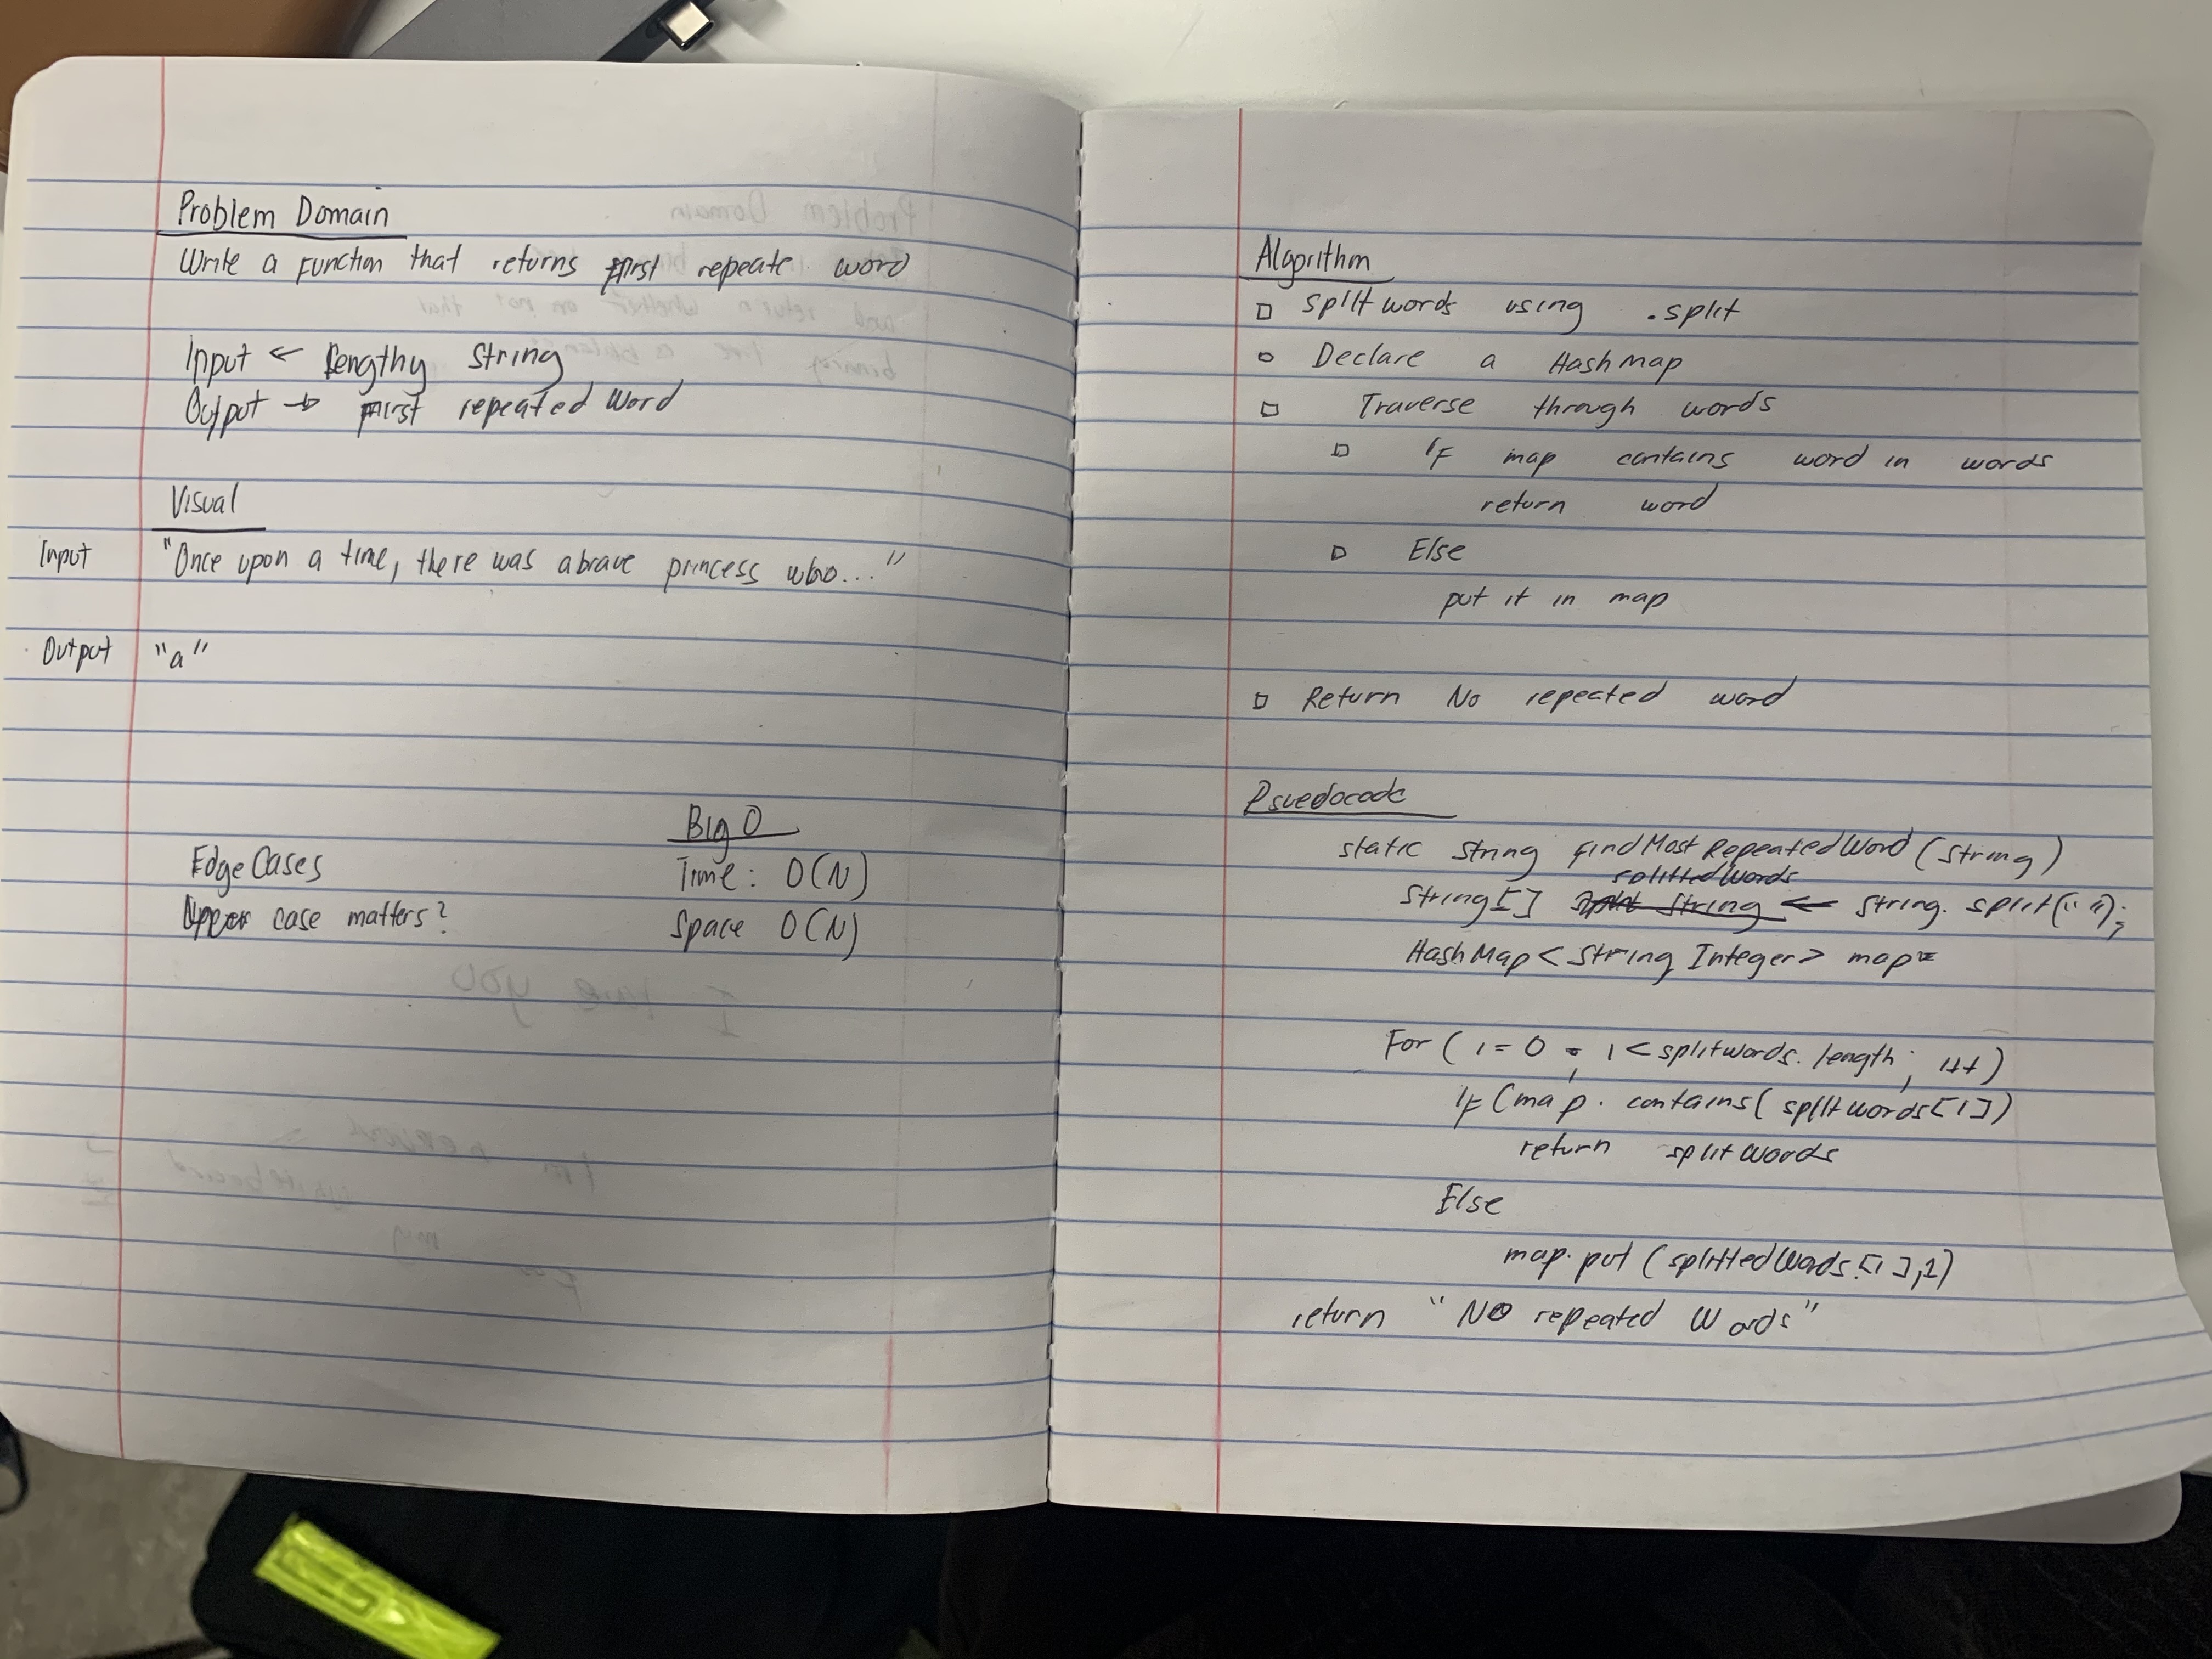 Problem Domain
Write a function that returns first repeate word
Input ← Lengthy String
Output → First repeated Word
Visual
Input "Once upon a time, there was a brave princess who..."
Output "a"
Big O
Edge Cases Time: O(N)
Upper case matters? Space O(N)
Algorithm
split words using .split
Declare a HashMap
Traverse through words
If map contains word in words
return word
Else
put it in map
Return No repeated word
Psuedocode
static String findMostRepeatedWord (String)
splittedWords
String[] ← String. split(" ");
HashMap<String Integer> map=
For ( i=0 ; i < splitwords. length ; i++)
If (map. contains( splitwords[i])
return splitwords
Else
map.put (splittedWords.[i],1)
return "No repeated Words"